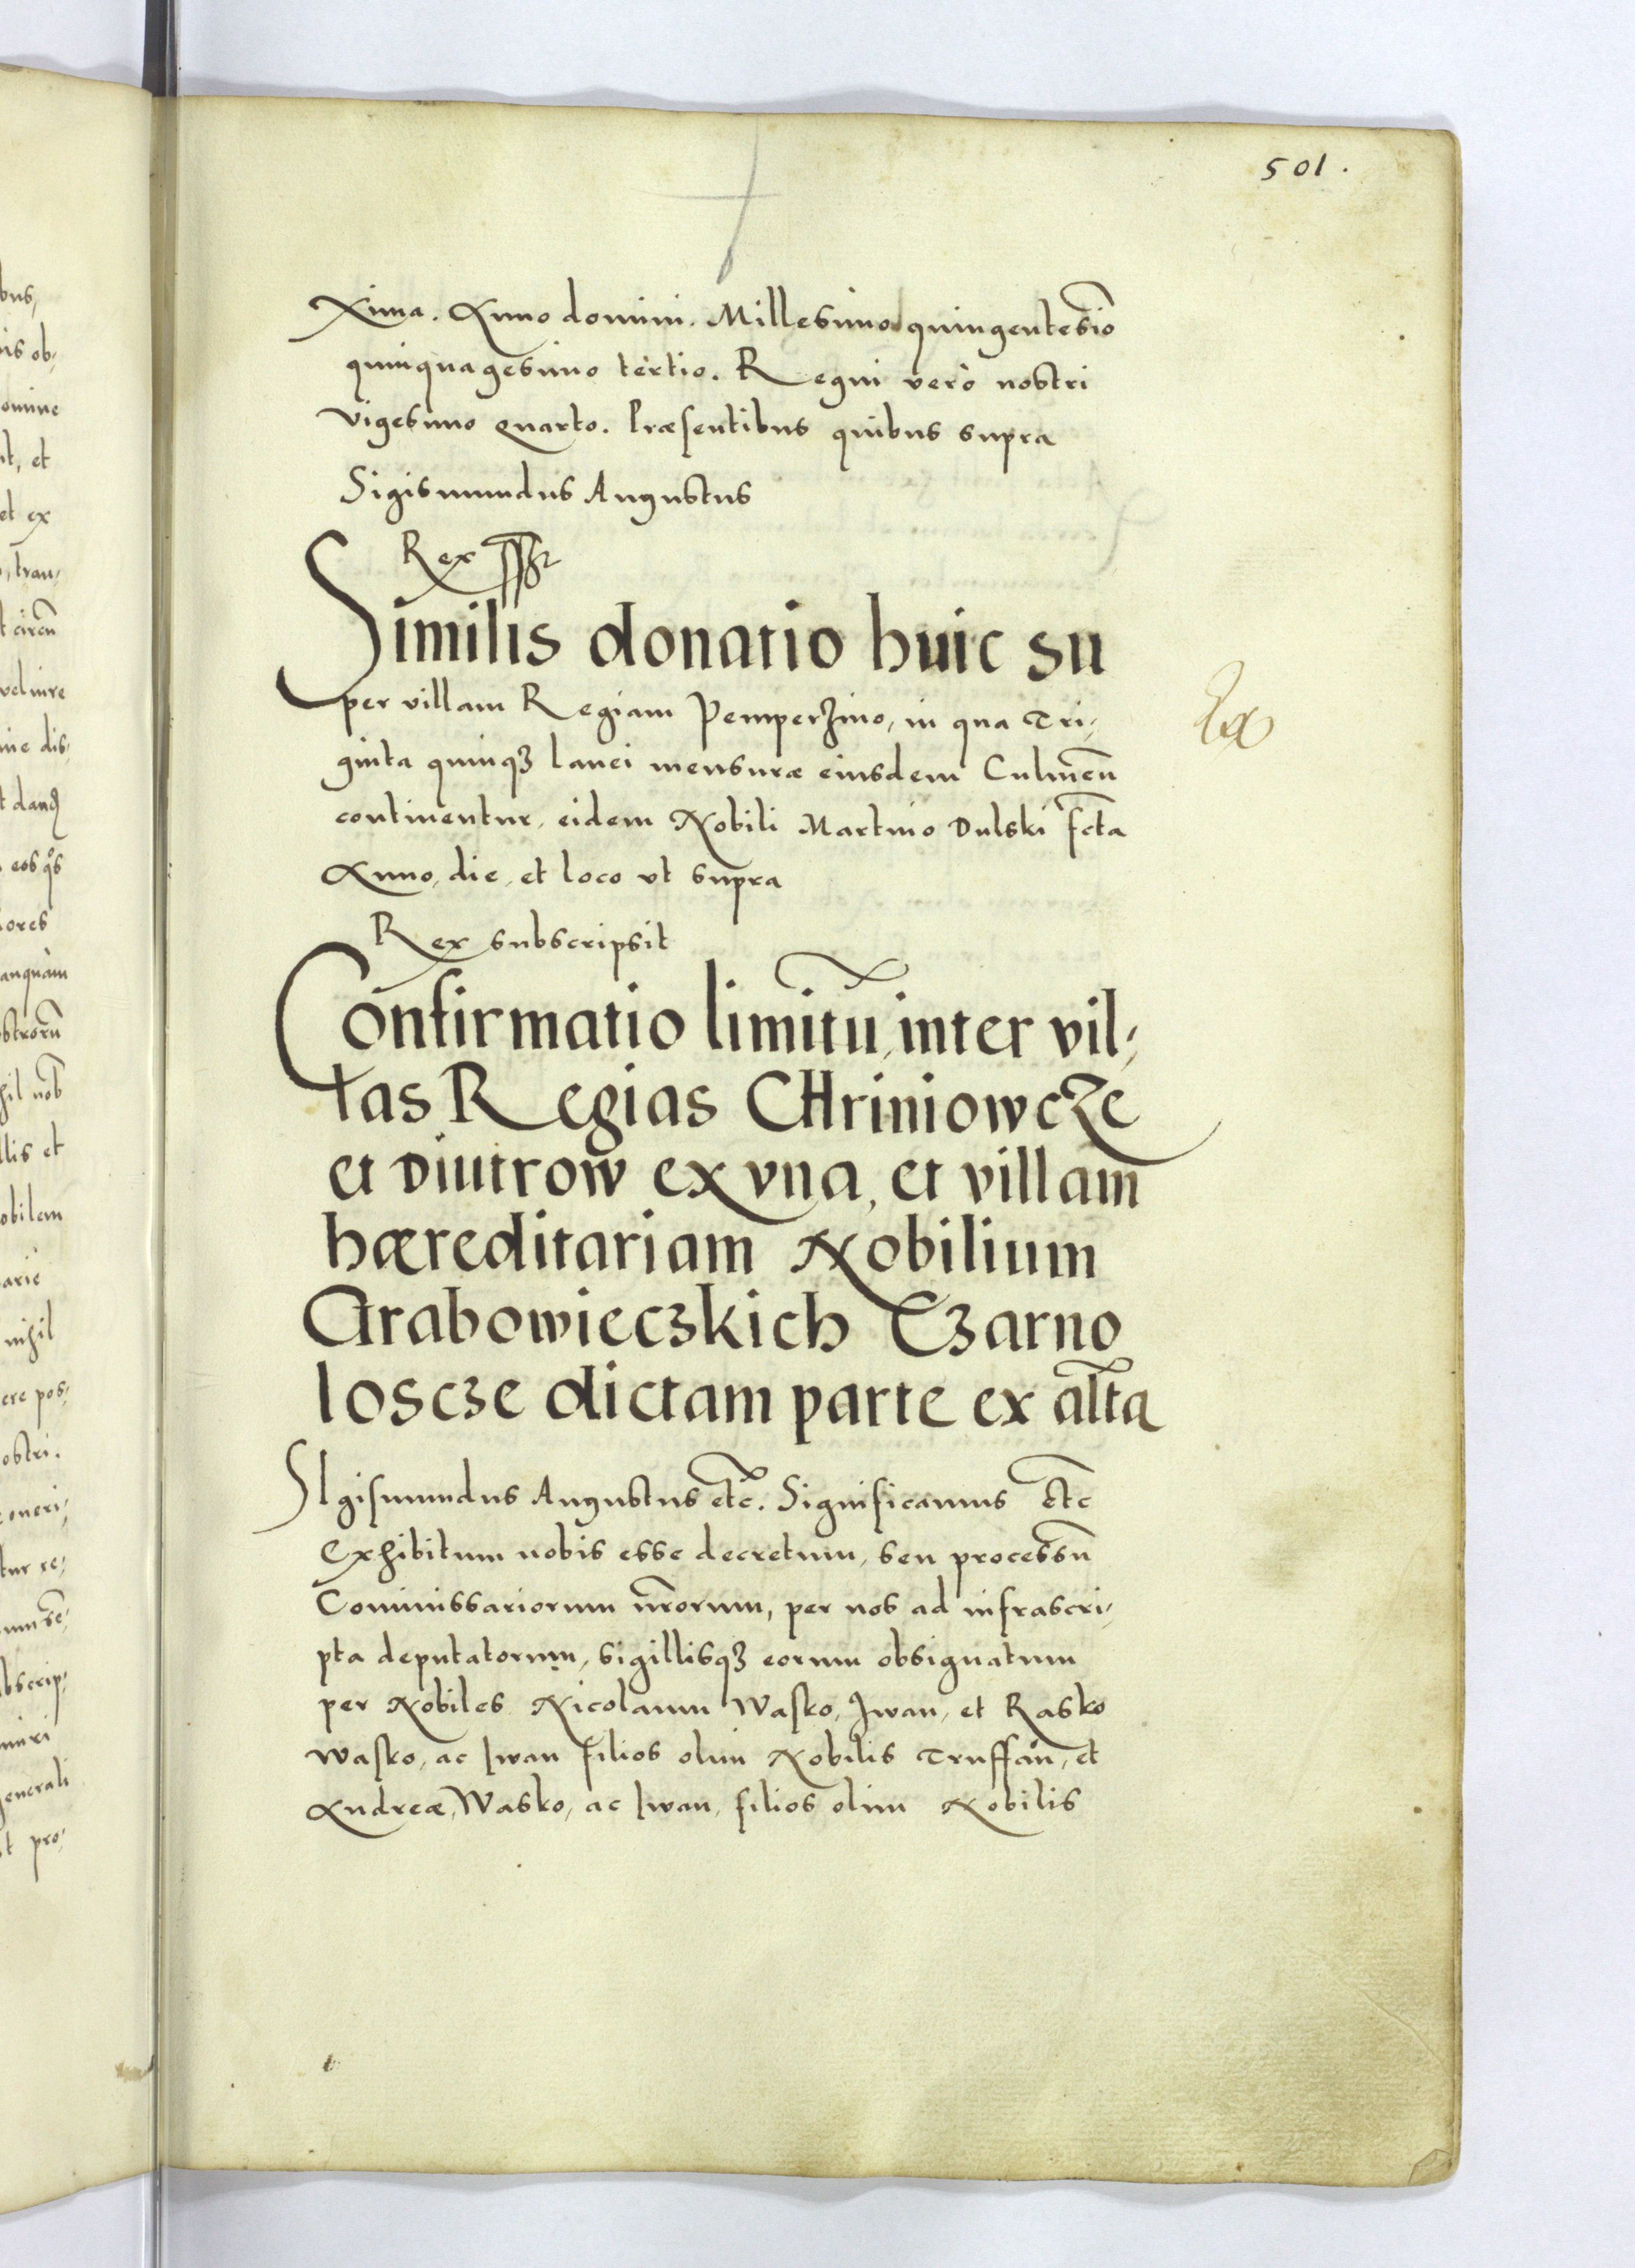 501.
xima. Anno domini. Millesimo quingentesĩo
quinquagesimo tertio. Regni verò nostri
vigesimo quarto. Præsentibus quibus supra
Sigismundus Augustus
Rex
Similis donatio huic su
per villam Regiam Pemperzino, in qua Tri,
ginta quinqȝ lanei mensuræ eiusdem Culmeñ
continentur, eidem Nobili Martino Dulski fcta
Anno, die, et loco vt supra
Rex subscripsit
Confirmatio limitũ, inter vil,
las Regias CHriniowcze
et Diutrow ex vna, et villam
hæreditariam Nobilium
Grabowieczkich Czarno
loscze dictam parte ex alta
SIgismundus Augustus etc̃. Significamus etc
Exhibitum nobis esse decretum, seu processũ
Commissariorum nr̃orum, per nos ad infrascri,
pta deputatorum, sigillisqȝ eorum obsignatum
per Nobiles Nicolaum Wasko, Iwan, et Rasko
Wasko, ac Iwan filios olim Nobilis Truffan, et
Andreæ, Wasko, ac Iwan, filios olim Nobilis